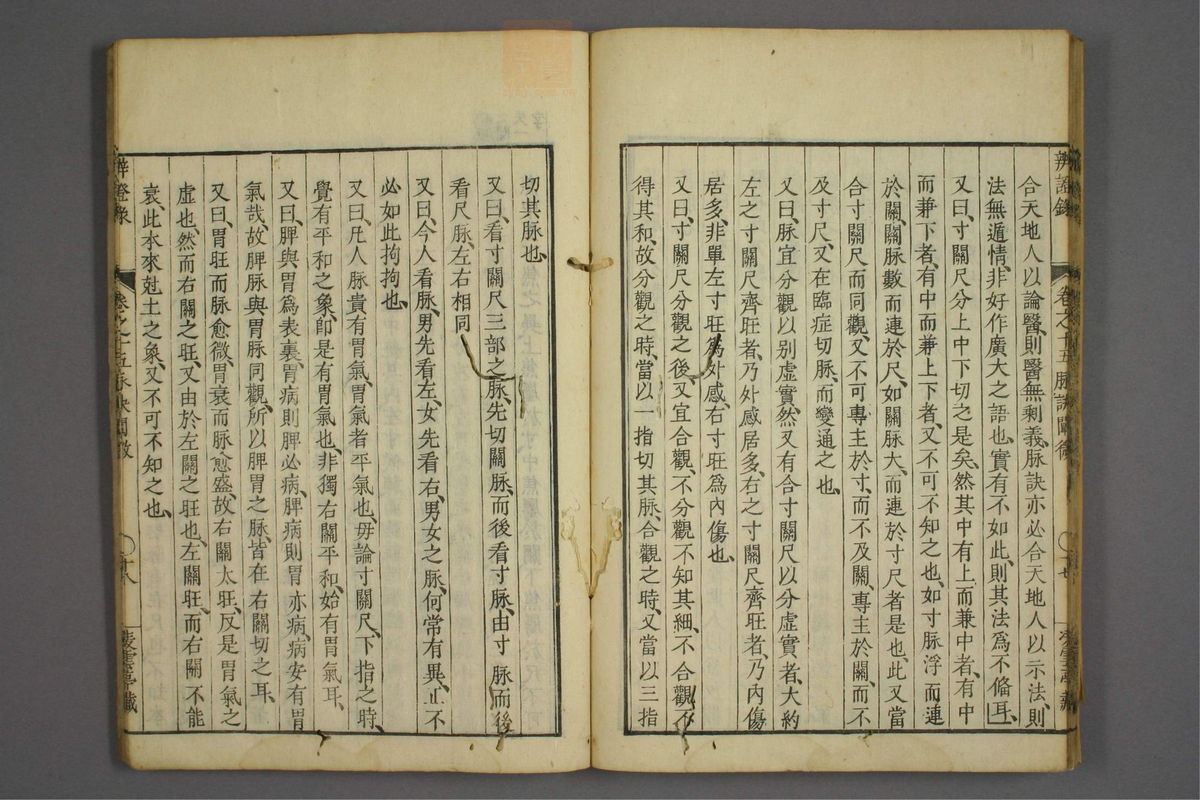 辨證錄 卷之十五 脉訣闡微
合天地人以論醫、則醫無剩義、脉訣亦必合天地人以示法、則
法無遁情、非好作廣大之語也、實有不如此、則其法爲不備耳、
又曰、寸關尺分上中下切之是矣、然其中有上而兼中者、有中
而兼下者、有中而兼上下者、又不可不知之也、如寸脉浮而連
於關、關脉數而連於尺、如關脉大、而連於寸尺者是也、此又當
合寸關尺而同觀、又不可專主於寸、而不及關、專主於關、而不
及寸尺、又在臨症切脉、而變通之也、
又曰、脉宜分觀以别虛實、然又有合寸關尺以分虛實者、大約
左之寸關尺齊旺者、乃外感居多、右之寸關尺齊旺者、乃內傷
居多、非單左寸旺爲外感、右寸旺爲內傷也、
又曰、寸關尺分觀之後、又宜合觀、不分觀不知其細、不合觀不
得其和、故分觀之時、當以一指切其脉、合觀之時、又當以三指
切其脉也、
又曰、看寸關尺三部之脉、先切關脉、而後看寸脉、由寸脉而後
看尺脉、左右相同、
又曰、今人看脉、男先看左、女先看右、男女之脉、何常有異、正不
必如此拘拘也、
又曰、凡人脉貴有胃氣、胃氣者平氣也、毋論寸關尺、下指之時、
覺有平和之象、卽是有胃氣也、非獨右關平和、始有胃氣耳、
又曰、脾與胃爲表裏、胃病則脾必病、脾病則胃亦病、病安有胃
氣哉、故脾脉與胃脉同觀、所以脾胃之脉、皆在右關切之耳、
又曰、胃旺而脉愈微、胃衰而脉愈盛、故右關太旺、反是胃氣之
虛也、然而右關之旺、又由於左關之旺也、左關旺、而右關不能
衰、此木來尅土之象、又不可不知之也、
辨證錄 卷之十五 脉訣闡微 十八 凌雲亭藏